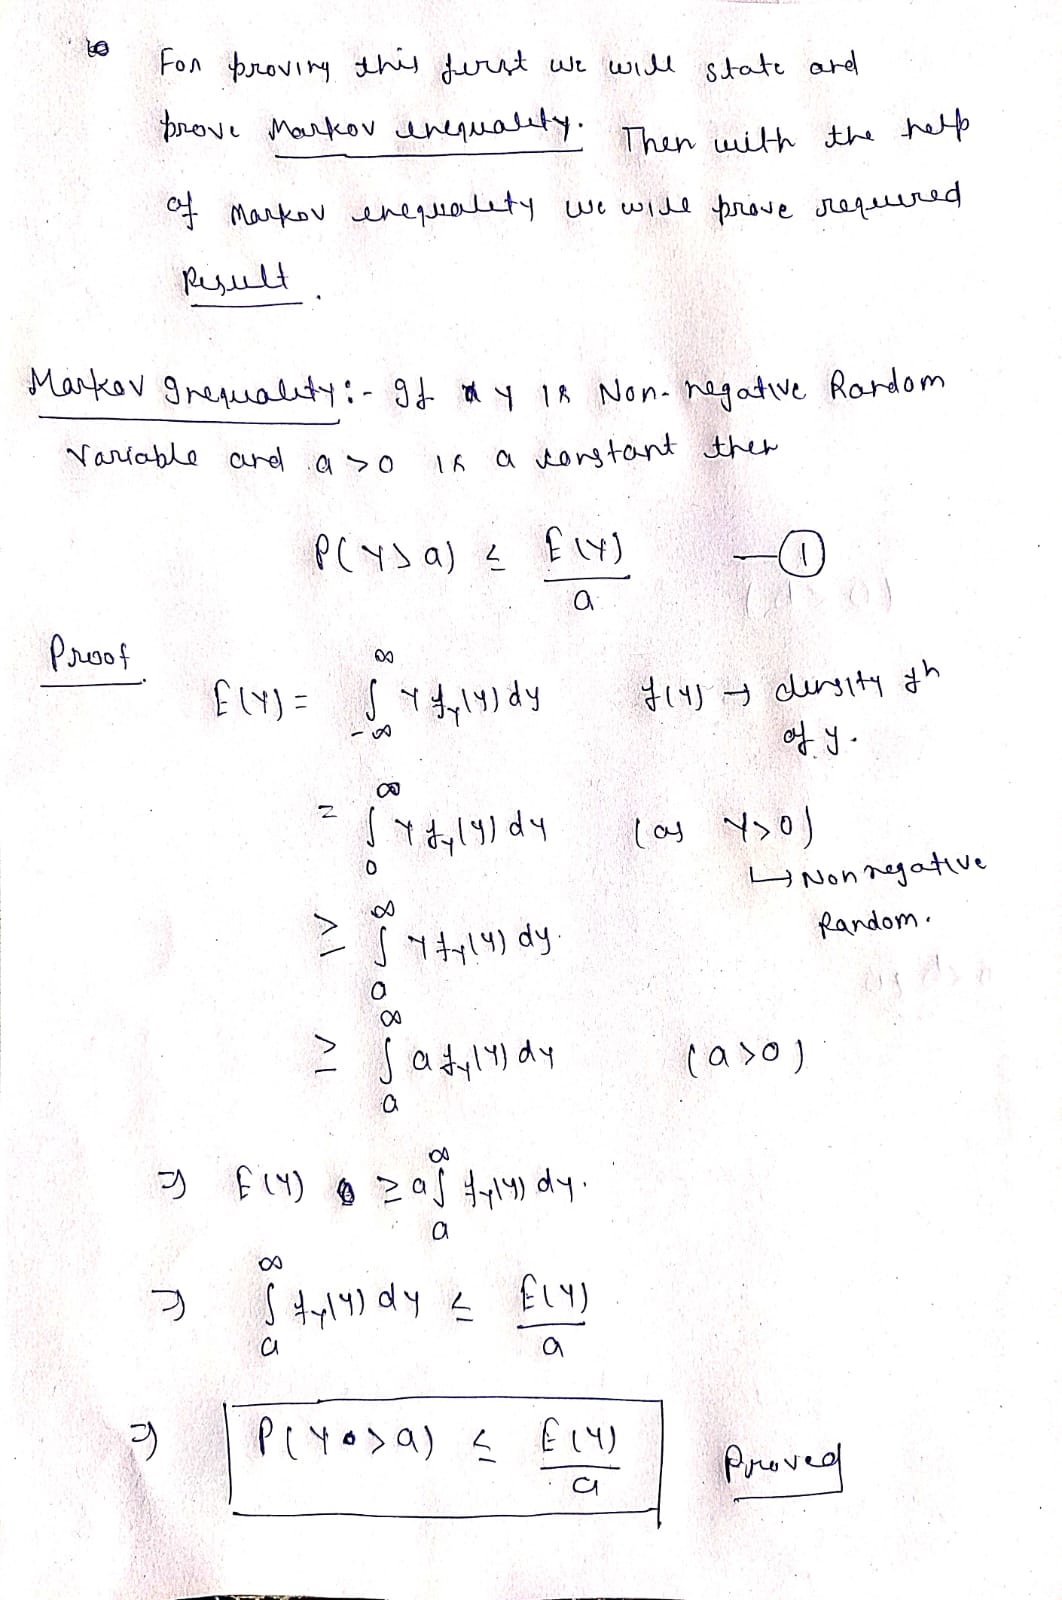 For proving this first we will state and
prove Markov inequality. Then with the help
of Markov inequality we will prove required
Result.
Markov Inequality:- If Y is Non-negative Random
Variable and a>0 is a constant then
P(Y>a) ≤ E(Y)/a —①
Proof
E(Y) = ∫_{-∞}^{∞} Y f_Y(Y) dy f(y) → density fn
of y.
= ∫_0^∞ Y f_Y(Y) dy (as Y>0)
↳ Non negative
Random.
≥ ∫_a^∞ Y f_Y(Y) dy.
≥ ∫_a^∞ a f_Y(Y) dy (a>0)
⇒ E(Y) ≥ a∫_a^∞ f_Y(Y) dy.
⇒ ∫_a^∞ f_Y(Y) dy ≤ E(Y)/a
⇒ P(Y>a) ≤ E(Y)/a Proved